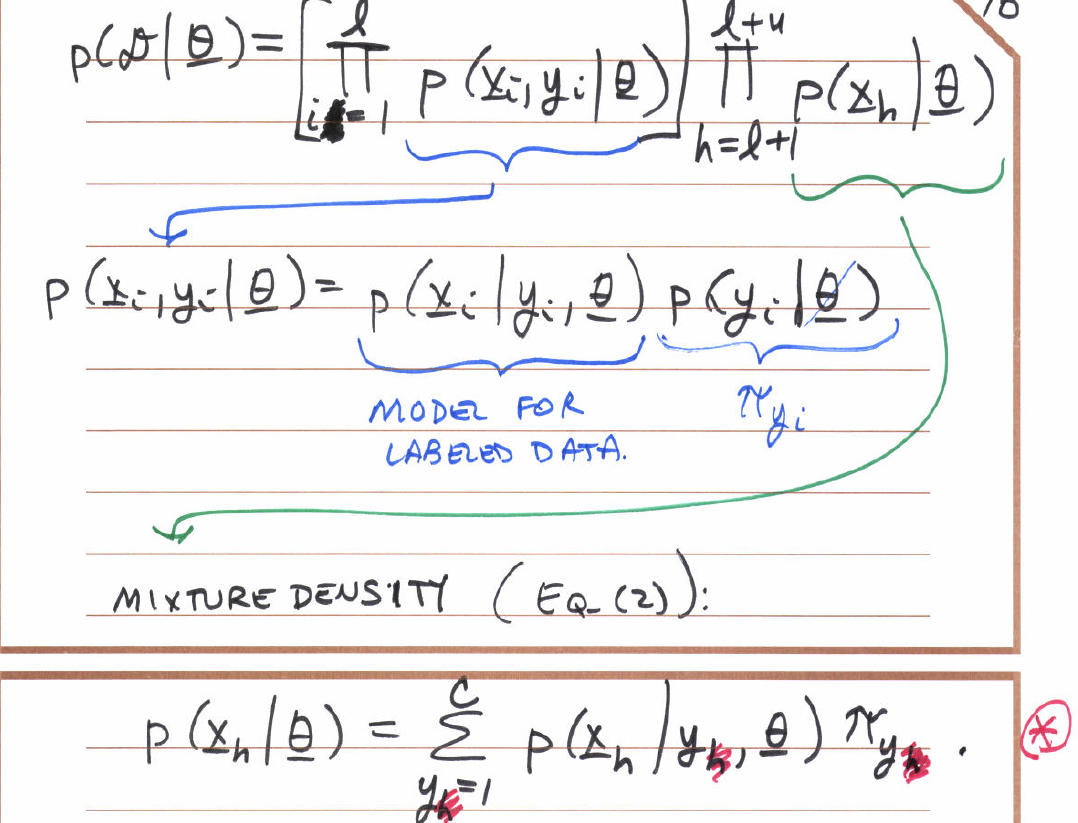 10
p(𝒟|θ) = [∏_{i=1}^{l} p(x_i, y_i|θ)] ∏_{h=l+1}^{l+u} p(x_h|θ)
p(x_i, y_i|θ) = p(x_i|y_i, θ) p(y_i|θ)
MODEL FOR π_{y_i}
LABELED DATA.
MIXTURE DENSITY (EQ. (2)):
p(x_h|θ) = Σ_{y_h=1}^{C} p(x_h|y_h, θ) π_{y_h}. *